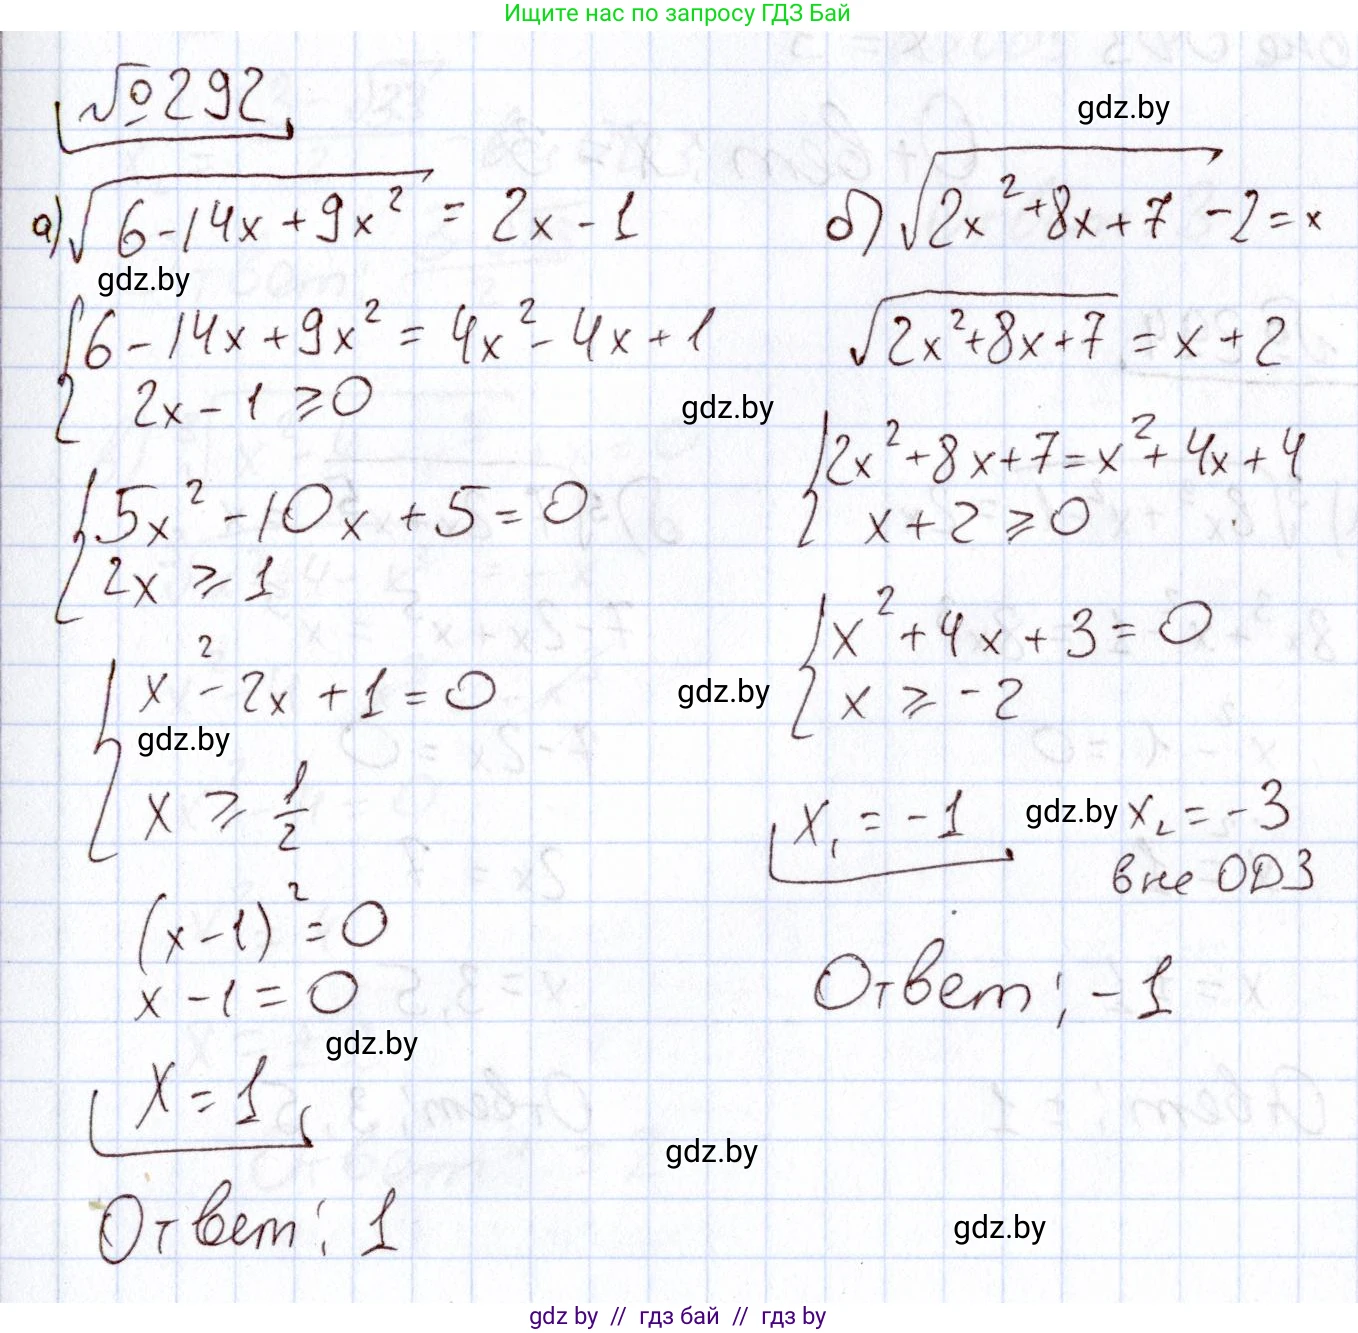 Ищите нас по запросу ГДЗ Бай
№292
gdz.by
а) √(6-14x+9x²) = 2x-1
gdz.by
{6-14x+9x² = 4x²-4x+1
2x-1≥0
{5x²-10x+5=0
2x≥1
{x²-2x+1=0
gdz.by
x≥1/2
(x-1)²=0
x-1=0
gdz.by
x=1
Ответ: 1
б) √(2x²+8x+7) -2=x
√(2x²+8x+7) = x+2
gdz.by
{2x²+8x+7=x²+4x+4
x+2≥0
{x²+4x+3=0
gdz.by
x≥-2
x₁=-1 gdz.by x₂=-3
вне ОДЗ
Ответ: -1
gdz.by
gdz.by
gdz by // гдз бай // гдз by